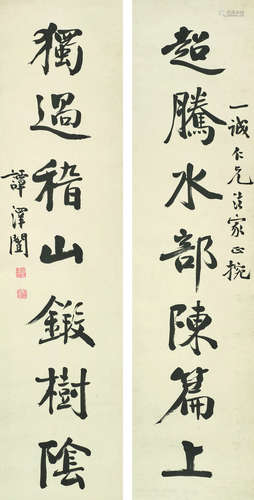 一誠仁兄法家正捥
超騰水部陳篇上
獨過嵇山鍛樹陰
譚澤闓